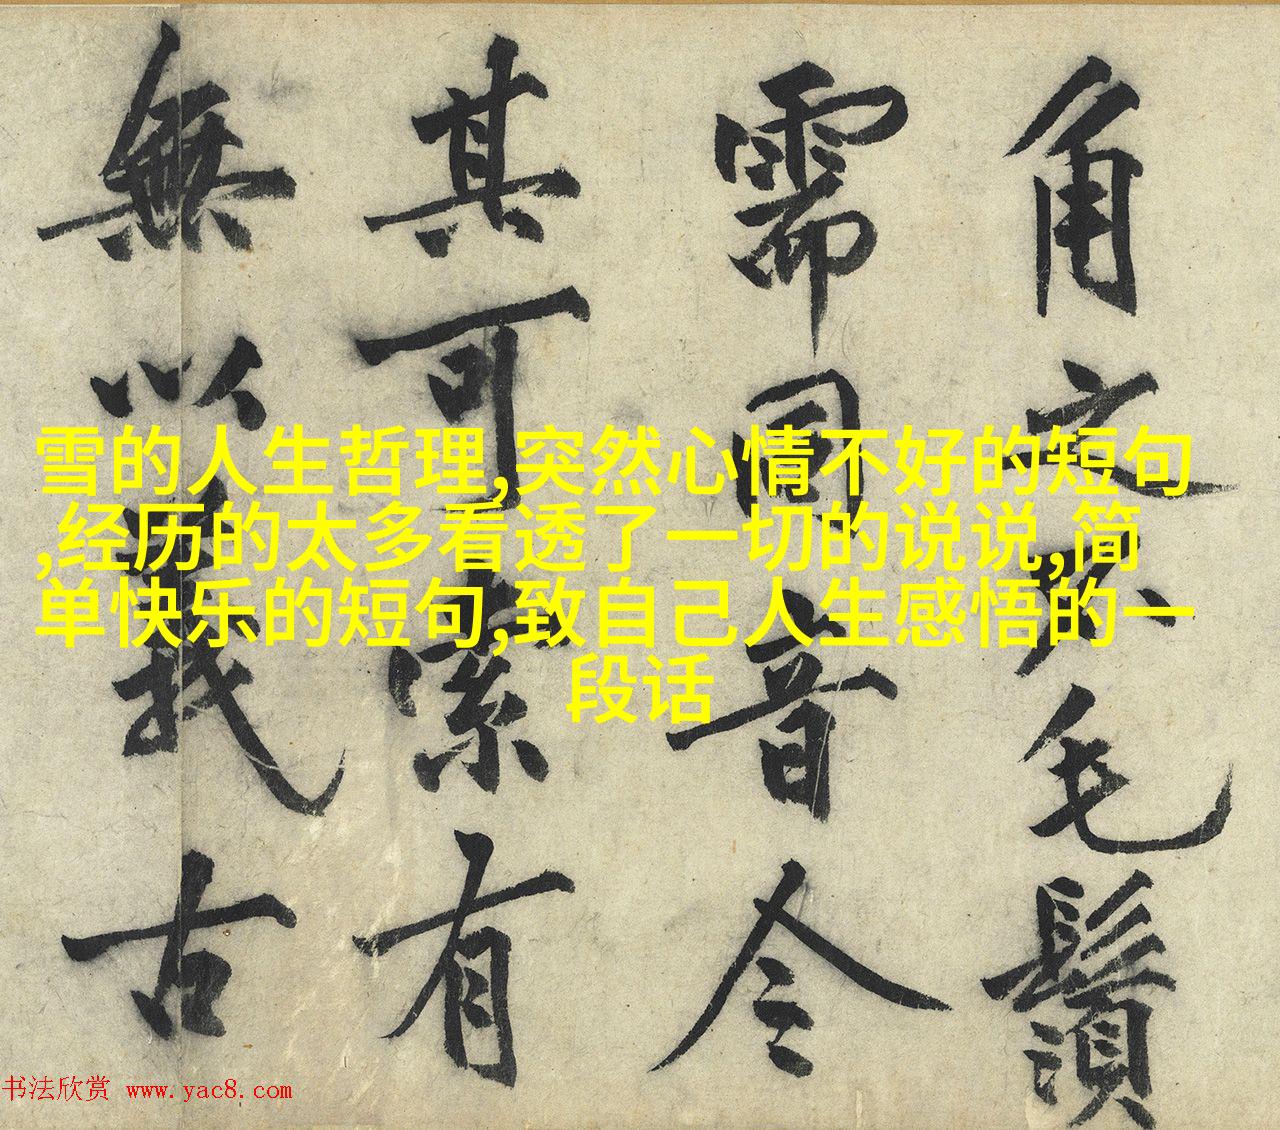 角不毛鬚
需音今
其可索有
無以義古
雪的人生哲理,突然心情不好的短句
,经历的太多看透了一切的说说,简
单快乐的短句,致自己人生感悟的一
段话
书法欣赏 www.yac8.com